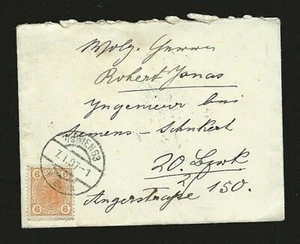 Wolg. Herrn
Robert Jonas
Yngenieur bei
Siemens-Schukert
20. Bezirk
Angerstraße 150.
WIEN 63
7.I.07-1
6 6